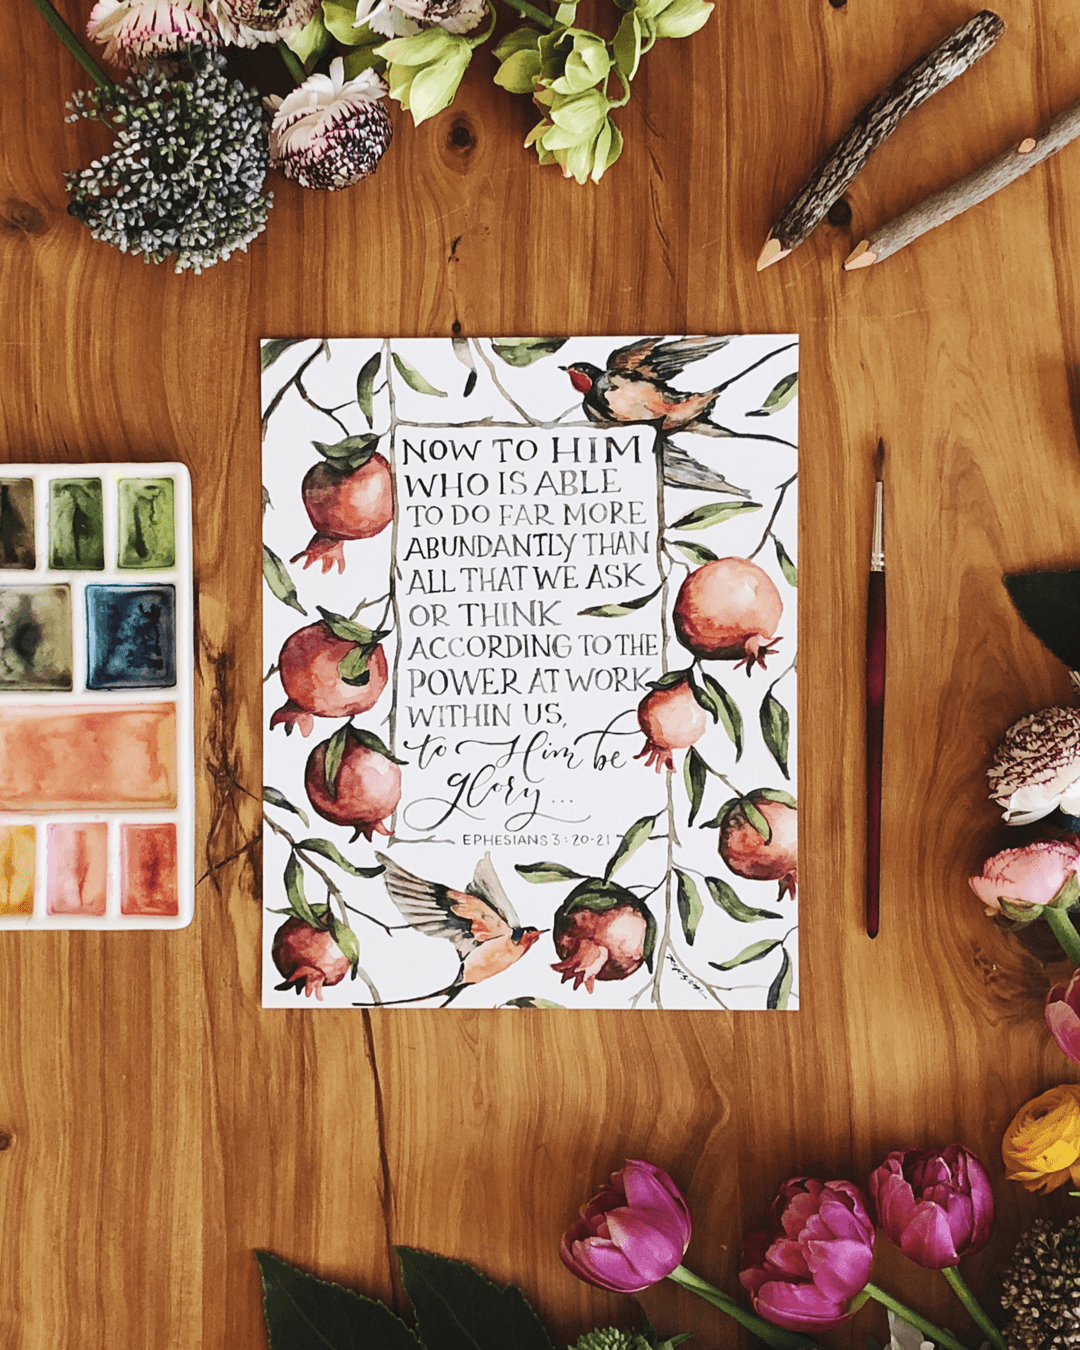 NOW TO HIM
WHO IS ABLE
TO DO FAR MORE
ABUNDANTLY THAN
ALL THAT WE ASK
OR THINK
ACCORDING TO THE
POWER AT WORK
WITHIN US,
to Him be
glory...
EPHESIANS 3:20-21